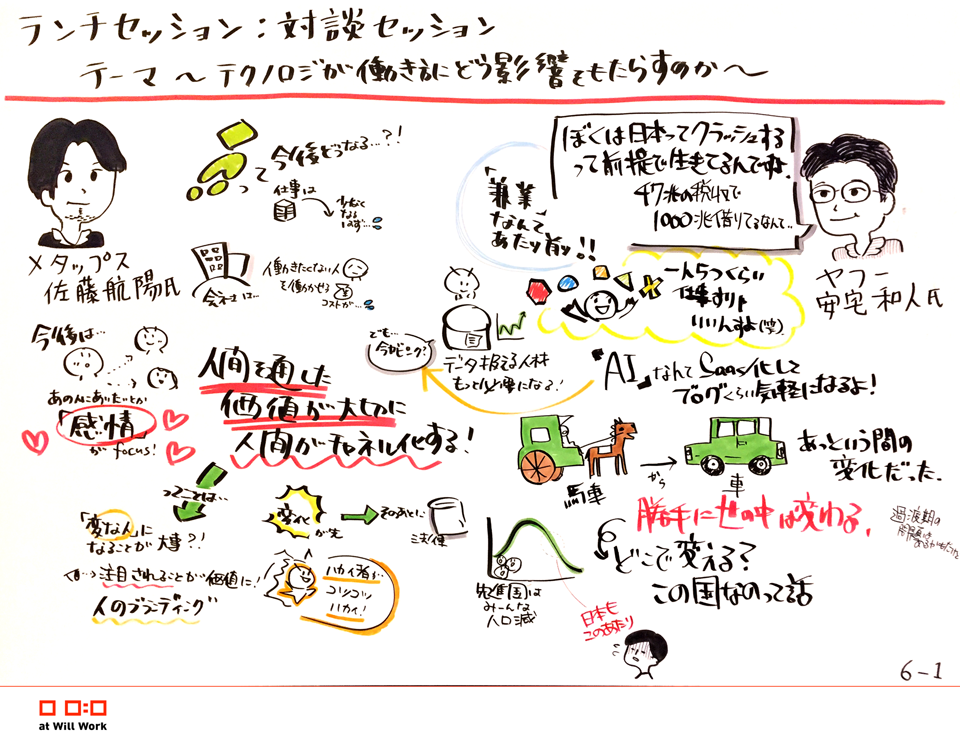 ランチセッション：対談セッション
テーマ 〜テクノロジが働き方にどう影響をもたらすのか〜
メタップス
佐藤航陽氏
って今後どうなる…?!
仕事は
少なく
なる
はず…
会社は…
働きたくない人
を働かせる
コストが…
今後は…
あの人にあいたいとか
「感情」
が focus!
人間を通した
価値が大切に
人間がチャネル化する!
ってことは…
「変な人」に
なることが大事?!
注目されることが価値に!
人のブランディング
変化
が先
そのあとに
ハカイ者が
コツコツ
ハカイ!
「兼業」
なんて
あたり前ッ!!
ぼくは日本ってクラッシュする
って前提で生きてるんですよ。
47兆の税収で
1000兆借りてるなんて..
ヤフー
安宅和人氏
一人5つくらい
仕事すりゃ
いいんすよ(笑)
でも…
今がピーク?
データ扱える人材
もっと必要になる!
「AI」なんてSaaS化して
ブログくらい気軽になるよ!
馬車
から
車
あっという間の
変化だった.
勝手に世の中は変わる.
過渡期の
問題は
あるかもだけど
どこで変える?
この国なのって話
先進国は
みーんな
人口減
日本も
このあたり
6-1
at Will Work